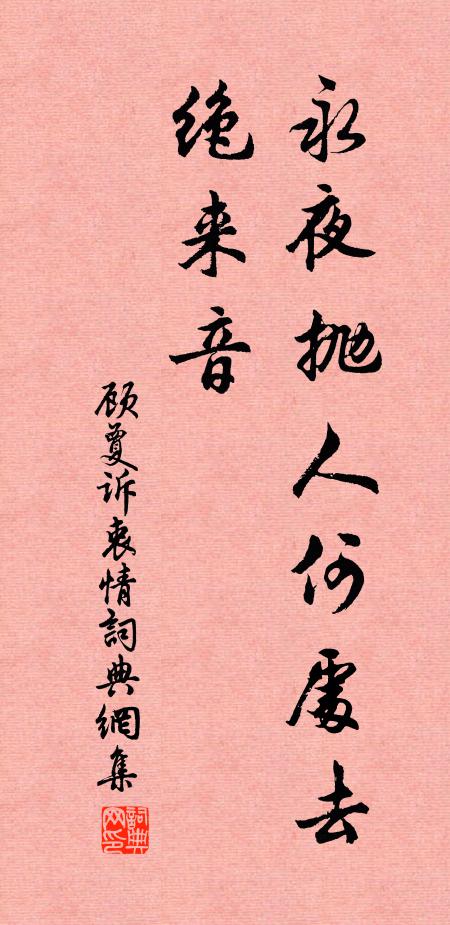 永夜抛人何處去
绝来音
顾夐诉衷情詞典網集
詞典网印